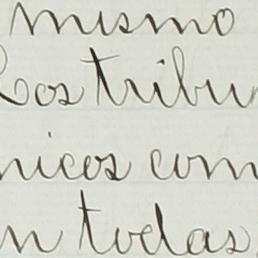 mismo
Los tribu
nicos com
n todas